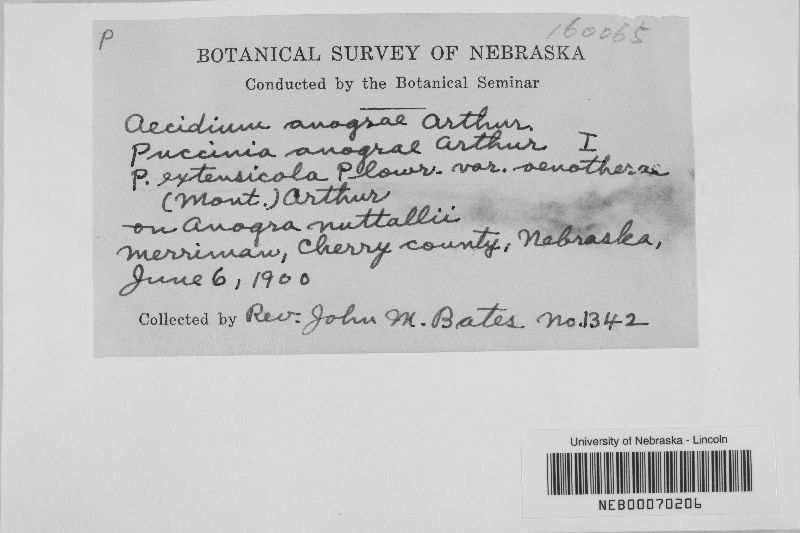 P
160065
BOTANICAL SURVEY OF NEBRASKA
Conducted by the Botanical Seminar
Aecidium anograe Arthur.
Puccinia anograe Arthur I
P. extensicola Plowr. var. oenotherae
(Mont.) Arthur
on Anogra nuttallii
Merriman, Cherry county, Nebraska,
June 6, 1900
Collected by Rev. John M. Bates No. 1342
University of Nebraska - Lincoln
NEB00070206